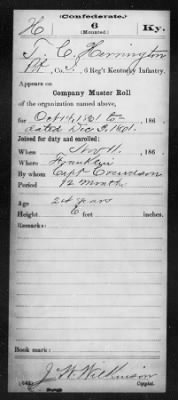 (Confederate.)
H 6 Ky.
(Mounted.)
T. C. Herrington
Pvt, Co. , 6 Reg't Kentucky Infantry.
Appears on
Company Muster Roll
of the organization named above,
for Oct 4, 1861 to , 186 .
dated Dec 3, 1861.
Joined for duty and enrolled:
When Nov 11 , 186 .
Where Franklin
By whom Capt
Period 12 months
Age 24 years
Height 6 feet inches.
Remarks:
Book mark:
J. W. Wilkinson
Copyist.